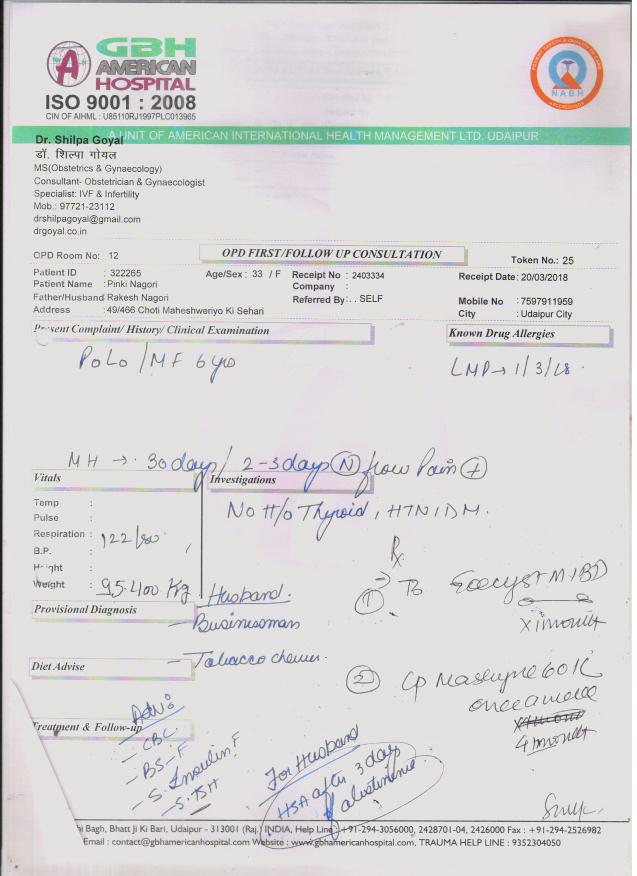 GBH
AMERICAN
HOSPITAL
ISO 9001 : 2008
CIN OF AIHML : U85110RJ1997PLC013965
NABH
A UNIT OF AMERICAN INTERNATIONAL HEALTH MANAGEMENT LTD. UDAIPUR
Dr. Shilpa Goyal
डॉ. शिल्पा गोयल
MS(Obstetrics & Gynaecology)
Consultant- Obstetrician & Gynaecologist
Specialist: IVF & Infertility
Mob.: 97721-23112
drshilpagoyal@gmail.com
drgoyal.co.in
OPD Room No: 12
OPD FIRST/FOLLOW UP CONSULTATION
Token No.: 25
Patient ID : 322265 Age/Sex : 33 / F Receipt No : 2403334 Receipt Date : 20/03/2018
Patient Name : Pinki Nagori Company :
Father/Husband Rakesh Nagori Referred By : . . SELF Mobile No : 7597911959
Address : 49/466 Choti Maheshweriyo Ki Sehari City : Udaipur City
Present Complaint/ History/ Clinical Examination
Known Drug Allergies
P0L0 / MF 6 yrs
LMP → 1/3/18.
MH → 30 days / 2-3 days (N) flow Pain (+)
Vitals
Investigations
No H/o Thyroid, HTN / DM.
Temp :
Pulse :
Respiration :
B.P. : 122/80
Height :
Weight : 95.400 Kg
Rx
① Tb M BD
x 1 month
Husband.
– Businessman
– Tobacco chewer.
Provisional Diagnosis
Diet Advise
② Cp 60K
once a week
4 month
Treatment & Follow-up
Adv:
– CBC
– BS-F
– S. Insulin F
– S. TSH
For Husband
HSA after 3 day
of abstinence.
hi Bagh, Bhatt Ji Ki Bari, Udaipur - 313001 (Raj.) INDIA, Help Line : +91-294-3056000, 2428701-04, 2426000 Fax : +91-294-2526982
Email : contact@gbhamericanhospital.com Website : www.gbhamericanhospital.com, TRAUMA HELP LINE : 9352304050